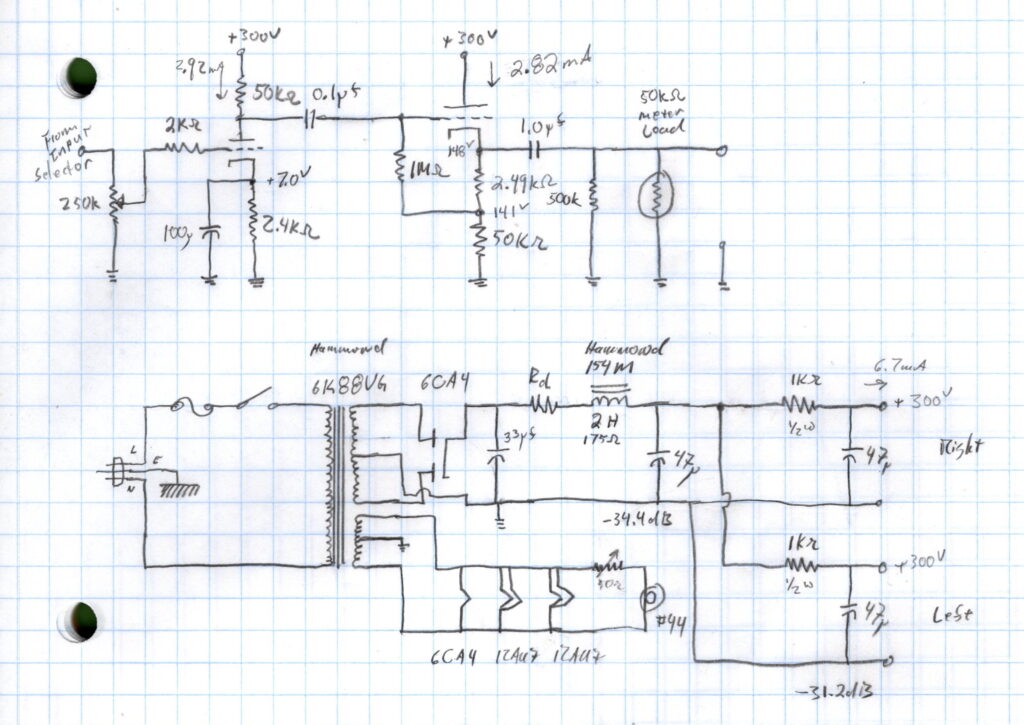 +300V
+300V
2.92mA
2.82mA
50kΩ
0.1µf
50kΩ
meter
Load
From
Input
Selector
2kΩ
1.0µf
148V
1MΩ
2.49kΩ
500k
+7.0V
250k
141V
100µ
2.4kΩ
50kΩ
Hammond
Hammond
154M
6K88VG
6CA4
Rd
1kΩ
6.7mA
+300V
2H
175Ω
1/2W
33µf
47µ
47µ
Right
L
E
N
-34.4dB
1kΩ
+300V
1/2W
47µ
Left
#44
6CA4
12AU7
12AU7
-31.2dB